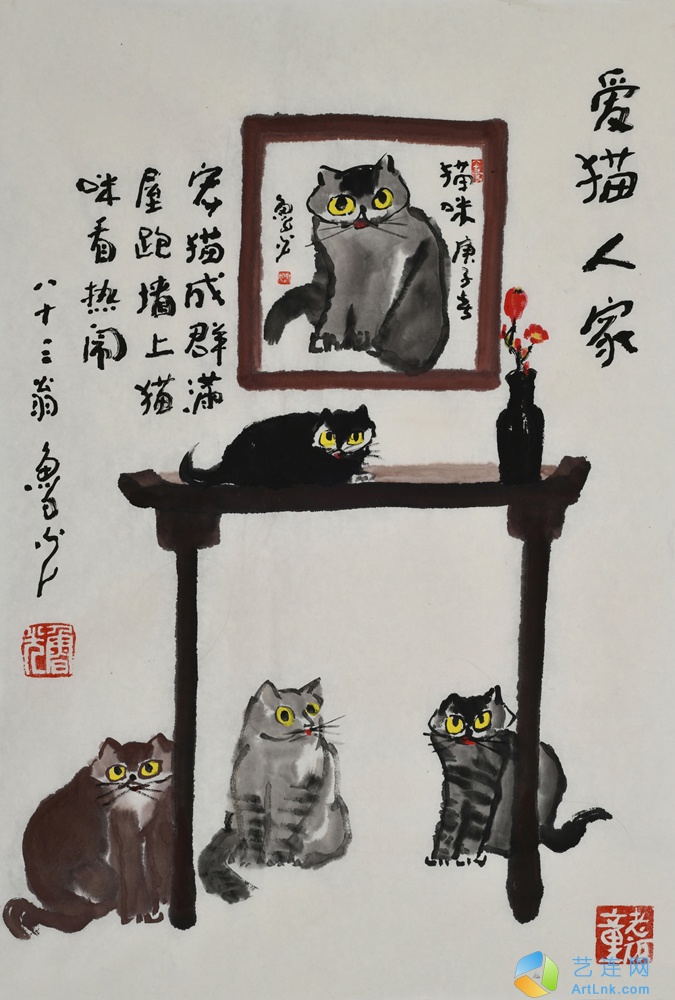 爱猫人家
猫咪 庚子春
鲁光
宠猫成群满
屋跑墙上猫
咪看热闹
八十三翁 鲁光
鲁光
艺连网
ArtLnk.com